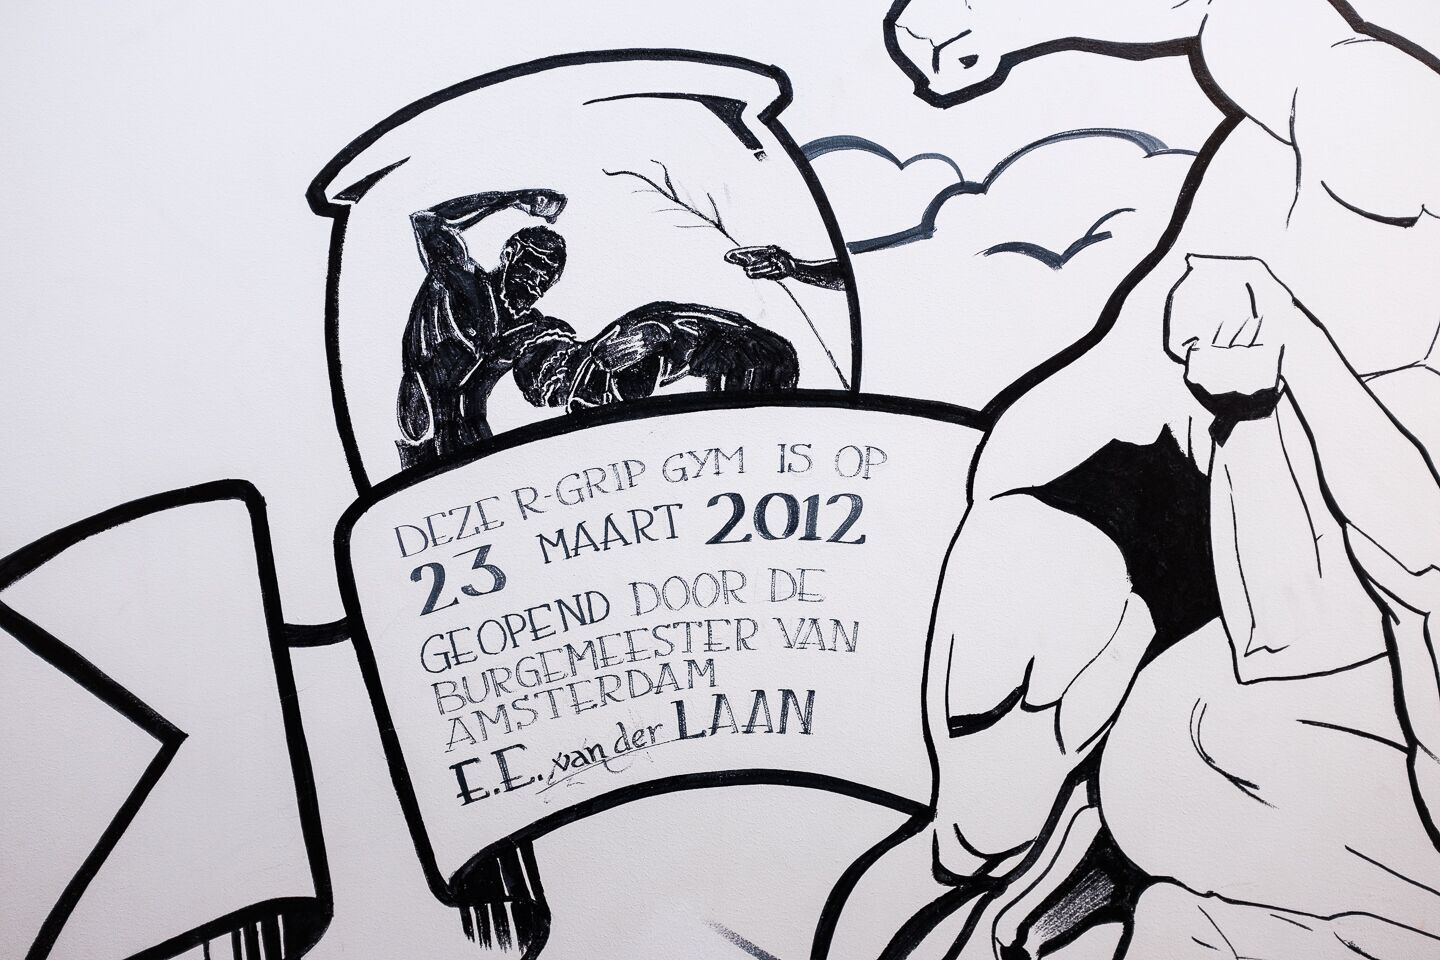 DEZE R-GRIP GYM IS OP
23 MAART 2012
GEOPEND DOOR DE
BURGEMEESTER VAN
AMSTERDAM
E.E. van der LAAN